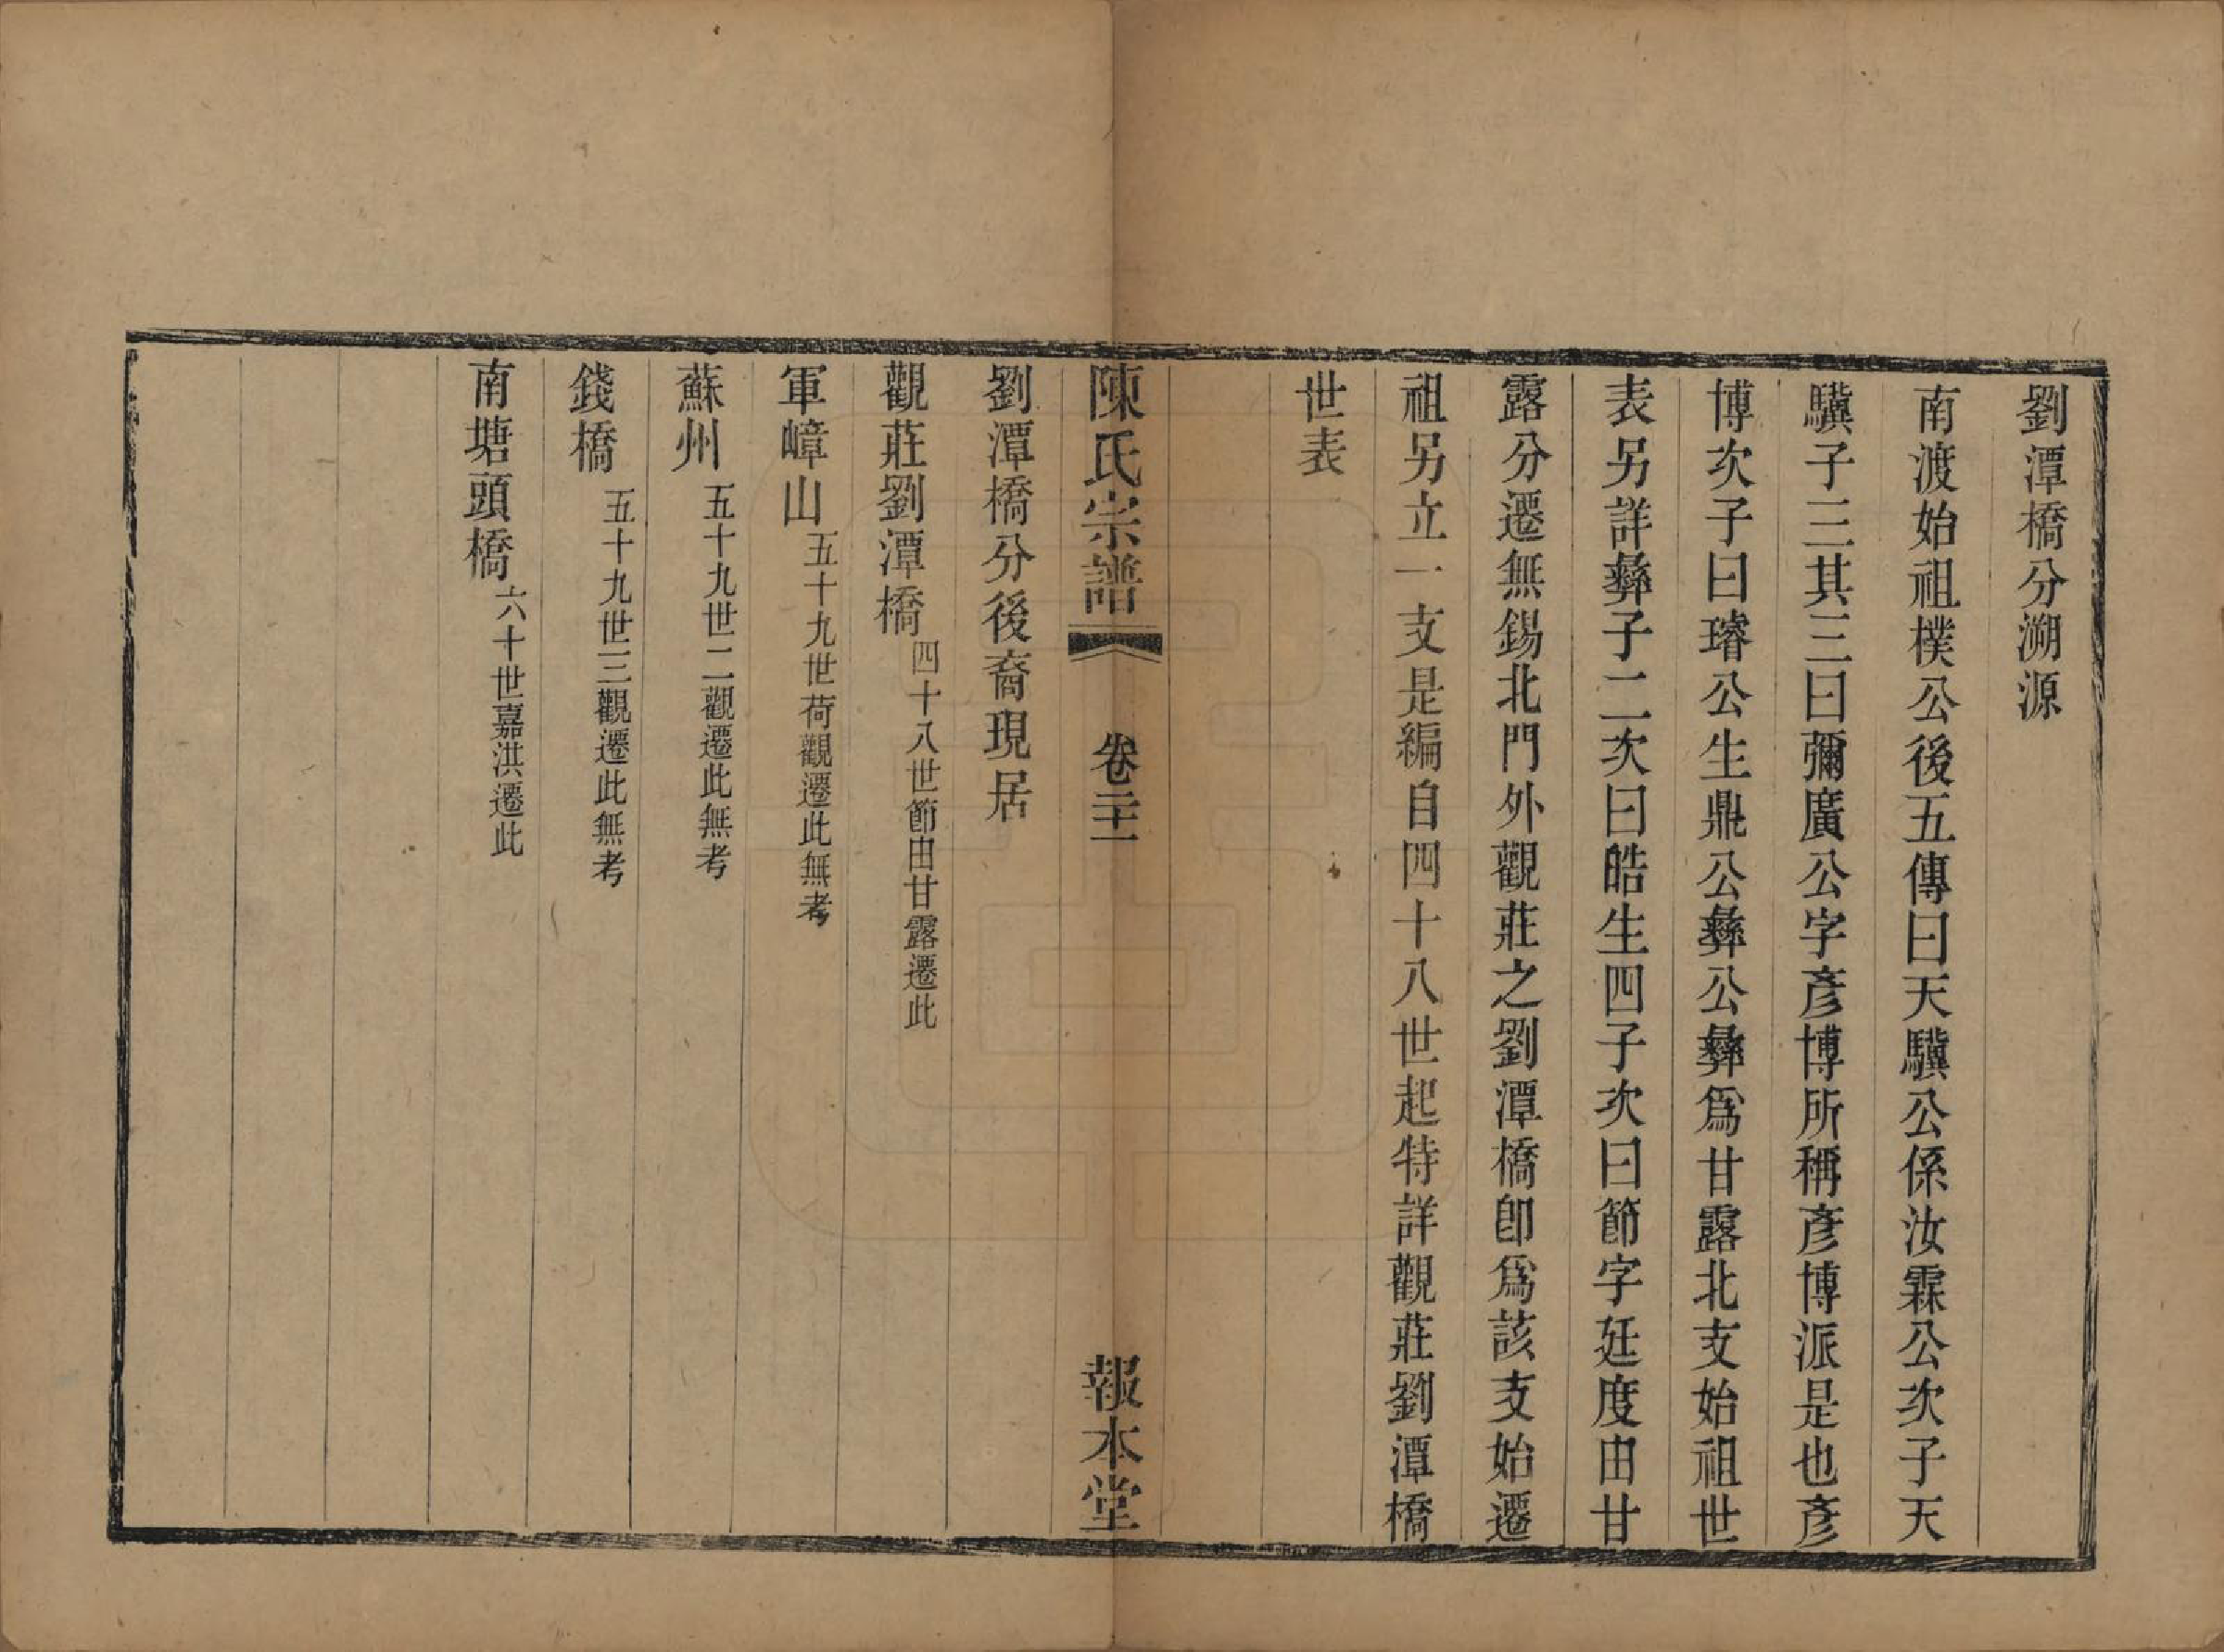 劉潭橋分溯源
南渡始祖樸公後五傳曰天驥公係汝霖公次子天
驥子三其三曰彌廣公字彥博所稱彥博派是也彥
博次子曰璿公生鼎公彝公彝爲甘露北支始祖世
表另詳彝子二次曰皓生四子次曰節字廷度由甘
露分遷無錫北門外觀莊之劉潭橋卽爲該支始遷
祖另立一支是編自四十八世起特詳觀莊劉潭橋
世表
陳氏宗譜 卷二十二 報本堂
劉潭橋分後裔現居
觀莊劉潭橋 四十八世節由甘露遷此
軍嶂山 五十九世荷觀遷此無考
蘇州 五十九世二觀遷此無考
錢橋 五十九世三觀遷此無考
南塘頭橋 六十世嘉洪遷此